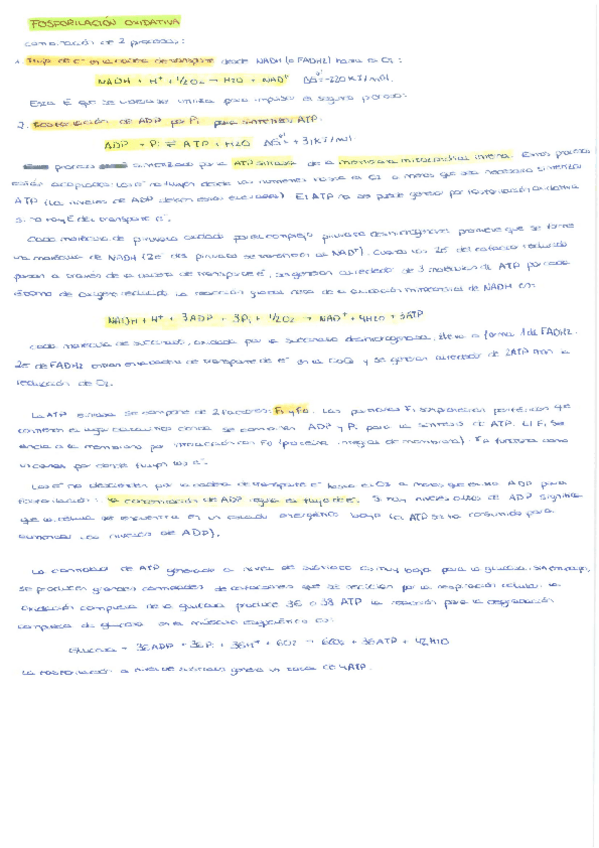 FOSFORILACIÓN OXIDATIVA
Combinación de 2 procesos:
1. Flujo de e⁻ en la cadena de transporte desde NADH (o FADH2) hasta el O2:
NADH + H⁺ + 1/2O2 → H2O + NAD⁺ ΔG°'=-220 KJ/mol.
Esta E que se va a usar para impulsar el segundo proceso:
2. Fosforilación de ADP por Pi para sintetizar ATP.
ADP + Pi ⇌ ATP + H2O ΔG°'= +31 KJ/mol.
proceso catalizado por la ATP sintasa de la membrana mitocondrial interna. Estos procesos
están acoplados: los e⁻ no fluyen desde los hasta el O2 a menos que sea necesario sintetizar
ATP (los niveles de ADP deben estar elevados). El ATP no se puede generar por fosforilación oxidativa
si no hay E del transporte e⁻.
Cada molécula de piruvato oxidada por el complejo piruvato deshidrogenasa promueve que se forme
una molécula de NADH (2e⁻ del piruvato se transfieren al NAD⁺). Cuando los 2e⁻ del
pasan a través de la cadena de transporte e⁻, se generan alrededor de 3 moléculas de ATP por cada
átomo de oxígeno reducido. La reacción global de la oxidación mitocondrial de NADH es:
NADH + H⁺ + 3ADP + 3Pi + 1/2O2 → NAD⁺ + 4H2O + 3ATP
Cada molécula de succinato, oxidada por la succinato deshidrogenasa, lleva a formar 1 de FADH2.
2e⁻ de FADH2 entran en la cadena de transporte de e⁻ en la CoQ y se generan alrededor de 2ATP por la
reducción de O2.
La ATP sintasa se compone de 2 factores: F1 y F0. Las partículas F1 son
contienen el lugar catalítico donde se combinan ADP y Pi para la síntesis de ATP. El F1 se
ancla a la membrana por interacción con F0 (proteína integral de membrana). F0 funciona como
un canal por donde fluyen los
Los e⁻ no descienden por la cadena de transporte e⁻ hasta el O2 a menos que exista ADP para
fosforilación: la concentración de ADP regula el flujo de e⁻. Si hay niveles altos de ADP significa
que la célula se encuentra en un estado energético bajo (el ATP se ha consumido para
aumentar los niveles de ADP).
La cantidad de ATP generada a nivel de sustrato es muy baja para la glucosa. Sin embargo,
se producen grandes cantidades de que se por la respiración celular. La
oxidación completa de la glucosa produce 36 o 38 ATP. La reacción para la degradación
completa de glucosa en el músculo esquelético es:
Glucosa + 36ADP + 36Pi + 36H⁺ + 6O2 → 6CO2 + 36ATP + 42H2O
La fosforilación a nivel de sustrato genera un total de 4ATP.